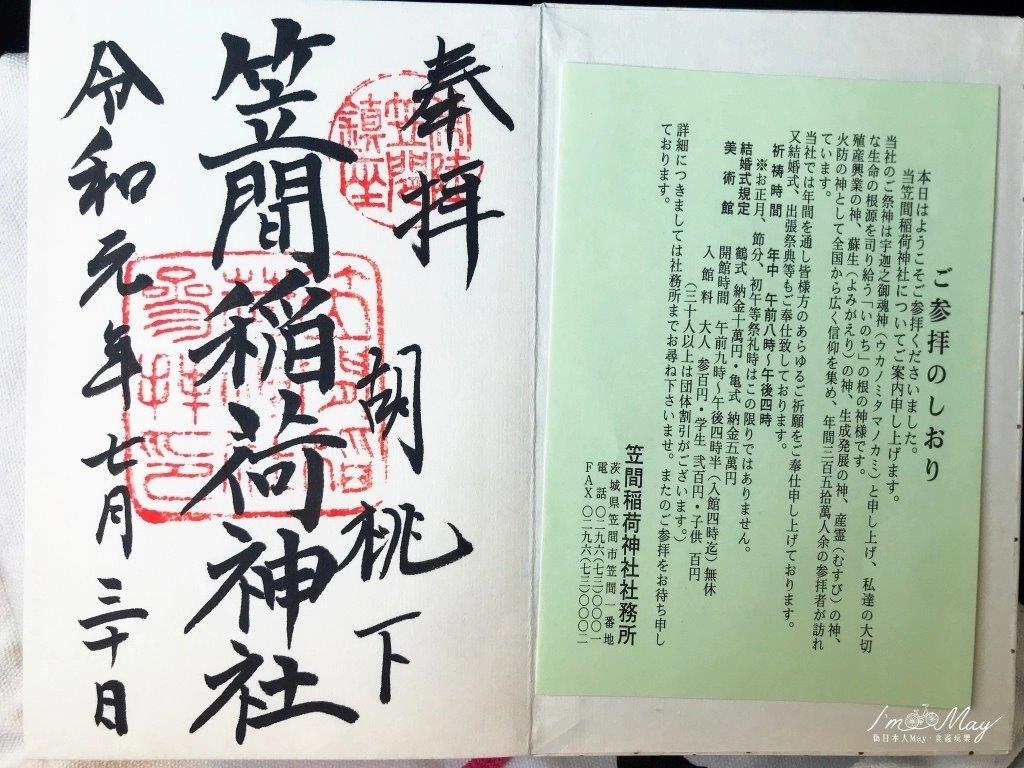 ご参拝のしおり
本日はようこそご参拝くださいました。
当笠間稲荷神社についてご案内申し上げます。
当社のご祭神は宇迦之御魂神（ウカノミタマノカミ）と申し上げ、私達の大切
な生命の根源を司り給う「いのち」の根の神様です。
殖産興業の神、蘇生（よみがえり）の神、生成発展の神、産霊（むすび）の神、
火防の神として全国から広く信仰を集め、年間三百五拾萬人余の参拝者が訪れ
ています。
当社では年間を通し皆様方のあらゆるご祈願をご奉仕申し上げております。
又結婚式、出張祭典等もご奉仕致しております。
祈祷時間　年中　午前八時～午後四時
※お正月、節分、初午等祭礼時はこの限りではありません。
結婚式規定　鶴式　納金十萬円・亀式　納金五萬円
美術館　開館時間　午前九時～午後四時半（入館四時迄）無休
入館料　大人　参百円・学生　弐百円・子供　百円
（三十人以上は団体割引がございます。）
詳細につきましては社務所までお尋ね下さいませ。またのご参拝をお待ち申し
ております。
笠間稲荷神社社務所
茨城県笠間市笠間一番地
電話〇二九六（七三）〇〇〇一
ＦＡＸ〇二九六（七三）〇〇〇二
奉拝
常陸
笠間
鎮座
胡桃下
笠間稲荷神社
令和元年七月三十日
I'm May
偽日本人May・食遊玩樂